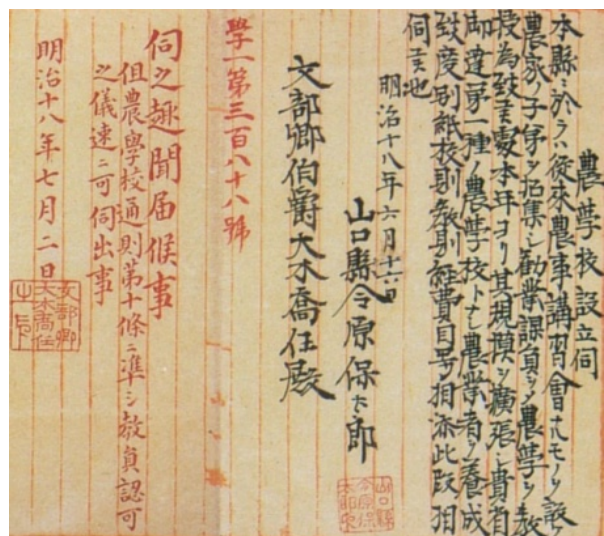 農學校設立伺
本縣ニ於テハ従來農事講習會ナルモノヲ設ケ
農家ノ子弟ヲ招集シ勧業課員ヲシテ農學ヲ教
授為致候處本年ヨリ其規模ヲ擴張シ貴省
御達第一種ノ農學校トナシ農業者ヲ養成
致度別紙校則教則経費目等相添此段相
伺候也
明治十八年六月十六日
山口縣令原保太郎
文部卿伯爵大木喬任殿
學一第三百八十八號
伺之趣聞届候事
但農學校通則第十條ニ準シ教員認可
之儀速ニ可伺出事
明治十八年七月二日
文部卿
大木喬任
之印
山口縣
令原保
太郎